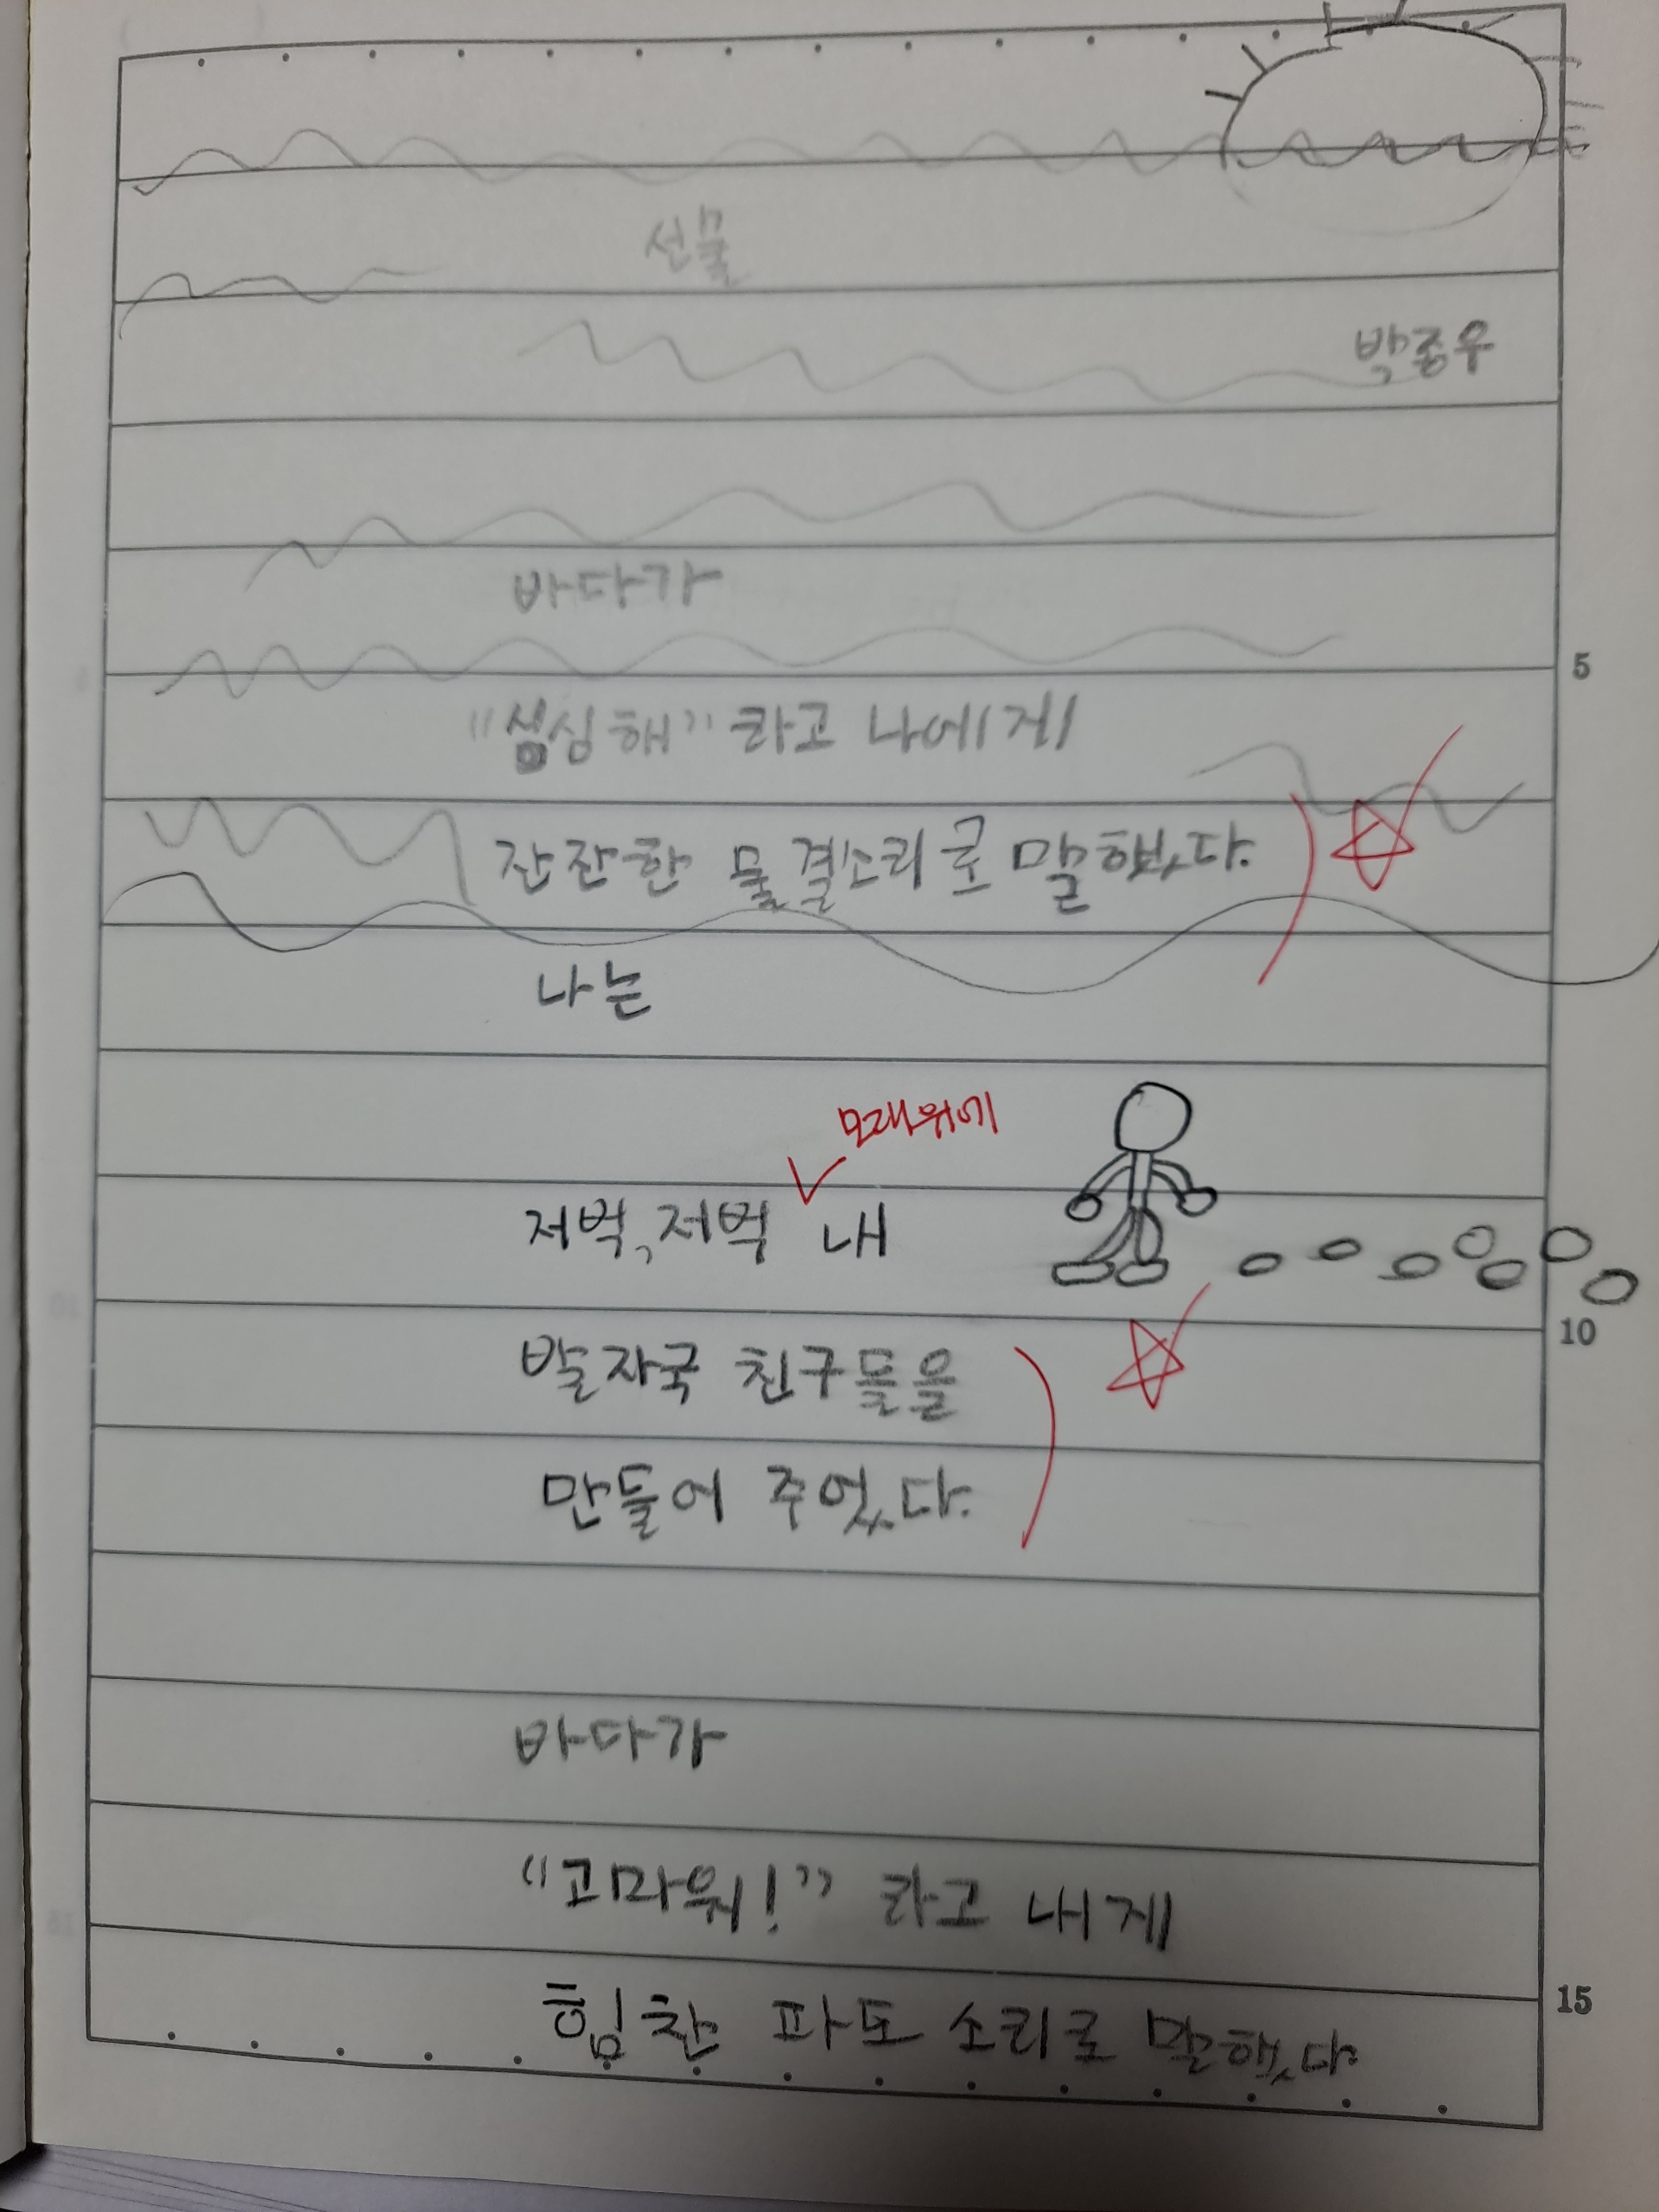 선물
박종우
바다가
5
"심심해" 라고 나에게
잔잔한 물결소리로 말했다.
나는
모래위에
저벅, 저벅 내
10
발자국 친구들을
만들어 주었다.
바다가
"고마워!" 라고 내게
15
힘찬 파도 소리로 말했다.